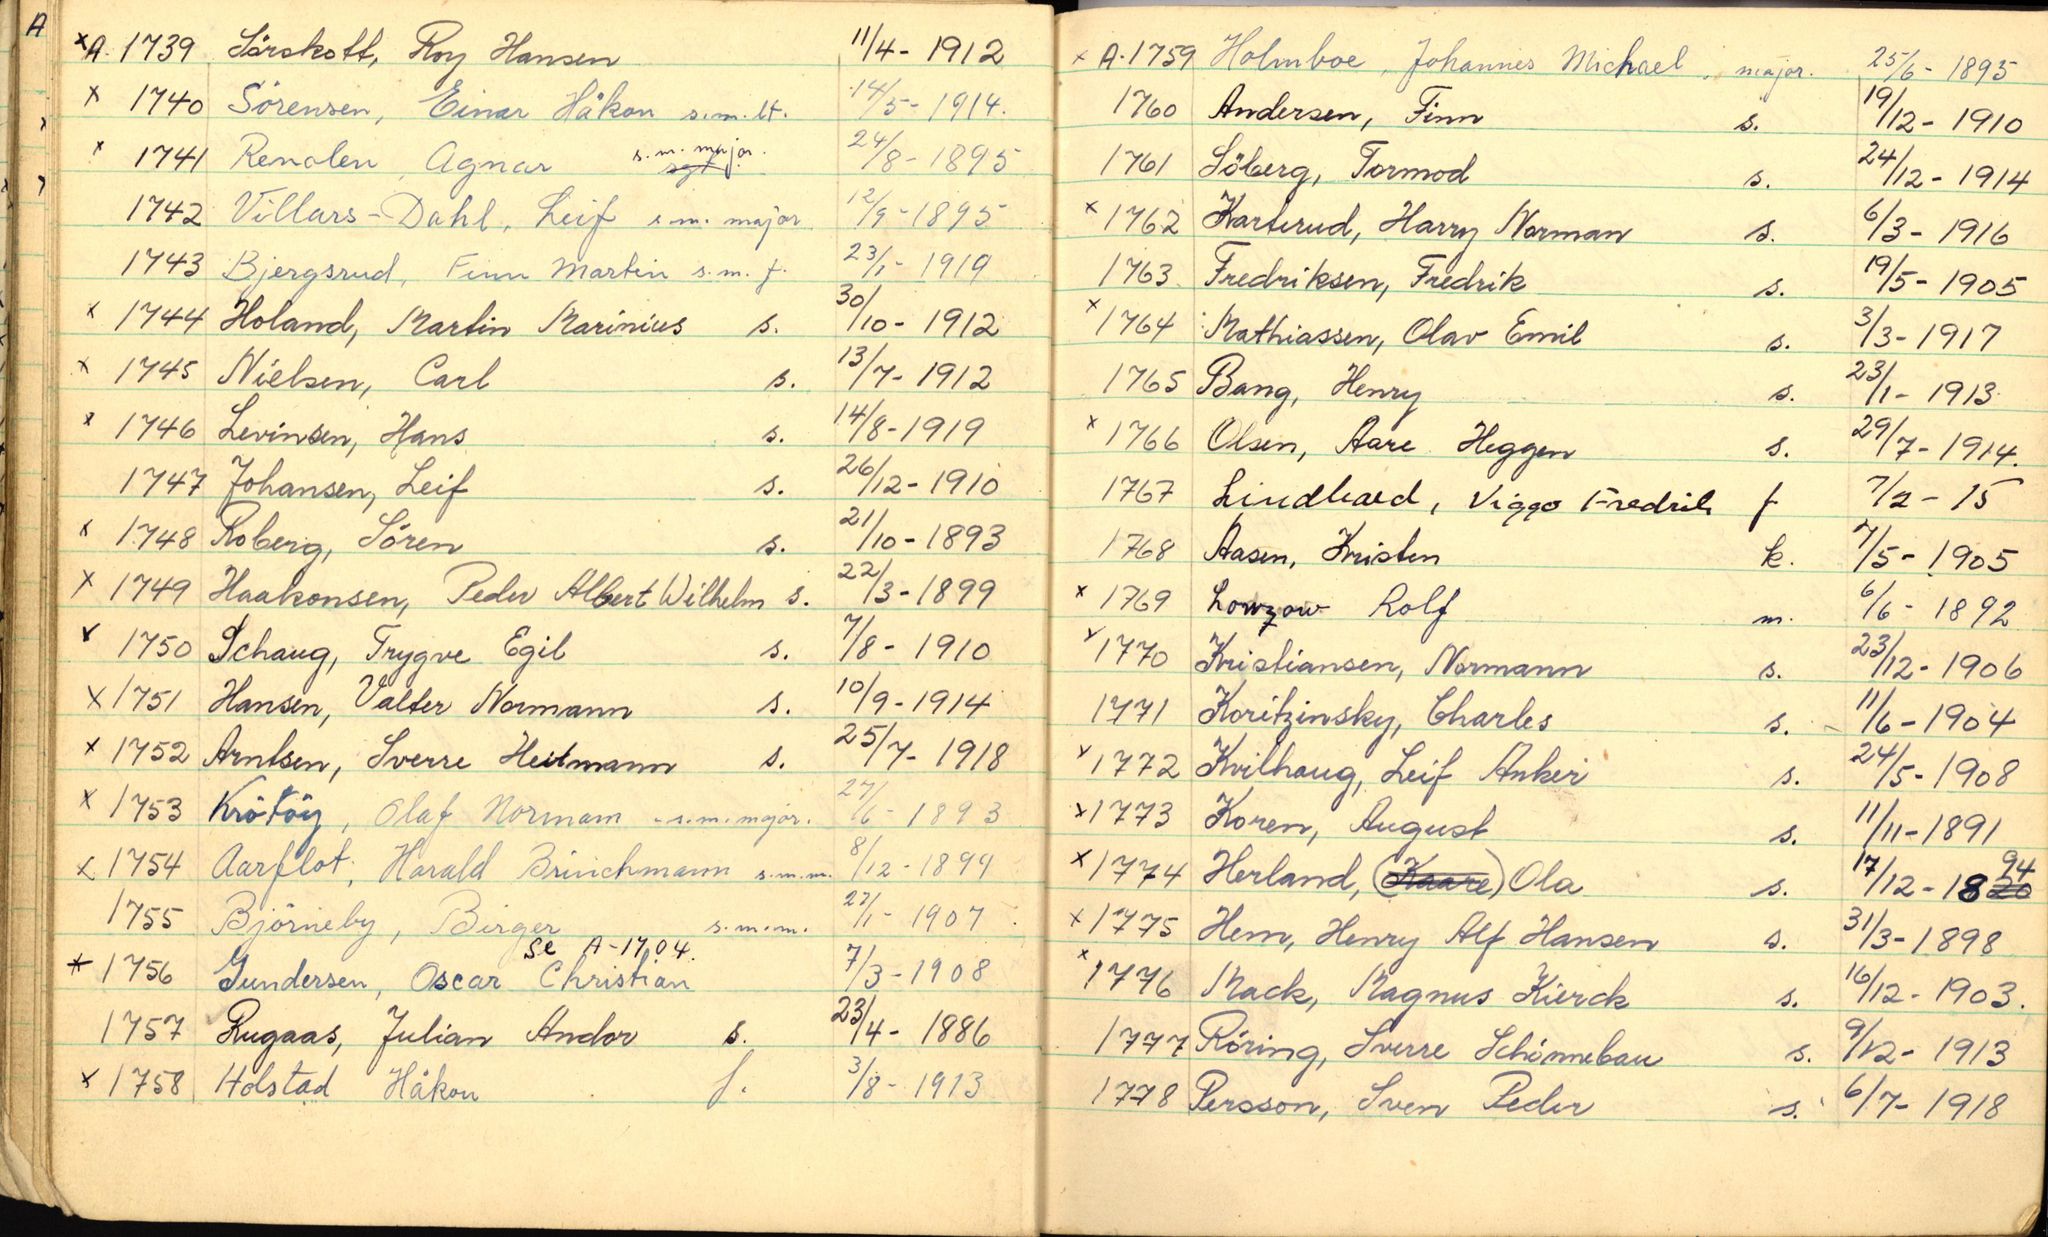 A
x A. 1739 Sörskott, Roy Hansen 11/4 - 1912
x 1740 Sörensen, Einar Håkon s.m.lt. 14/5 - 1914.
x 1741 Renolen, Agnar sgt. s.m. major. 24/8 - 1895
1742 Villars-Dahl, Leif s.m. major 12/9 - 1895
1743 Bjergsrud, Finn Martin s.m. f. 23/1 - 1919
x 1744 Holand, Martin Marinius s. 30/10 - 1912
x 1745 Nielsen, Carl s. 13/7 - 1912
x 1746 Levinsen, Hans s. 14/8 - 1919
1747 Johansen, Leif s. 26/12 - 1910
x 1748 Roberg, Sören s. 21/10 - 1893
x 1749 Haakonsen, Peder Albert Wilhelm s. 22/3 - 1899
x 1750 Schaug, Trygve Egil s. 7/8 - 1910
x 1751 Hansen, Valter Normann s. 10/9 - 1914
x 1752 Arntsen, Sverre Heitmann s. 25/7 - 1918
x 1753 Olaf Normann s.m. major. 27/6 - 1893
x 1754 Aarflot, Harald Brinchmann s.m.m. 8/12 - 1899
1755 Björneby, Birger s.m.m. 27/1 - 1907
Se A-1704.
x 1756 Gundersen, Oscar Christian 7/3 - 1908
1757 Rugaas, Julian Andor s. 23/4 - 1886
x 1758 Holstad Håkon f. 3/8 - 1913
x A. 1759 Holmboe, Johannes Michael, major. 25/6 - 1895
1760 Andersen, Finn s. 19/12 - 1910
1761 Söberg, Tormod s. 24/12 - 1914
x 1762 Karterud, Harry Norman s. 6/3 - 1916
1763 Fredriksen, Fredrik s. 19/5 - 1905
x 1764 Mathiassen, Olav Emil s. 3/3 - 1917
1765 Bang, Henry s. 23/1 - 1913
x 1766 Olsen, Aare Heggen s. 29/7 - 1914.
1767 Lindhard, Viggo Fredrik f 7/2 - 15
1768 Aasen, Kristen k. 7/5 - 1905
x 1769 Lowzow Rolf m. 6/6 - 1892
x 1770 Kristiansen, Normann s. 23/12 - 1906
1771 Koritzinsky, Charles s. 11/6 - 1904
x 1772 Kvilhaug, Leif Anker s. 24/5 - 1908
x 1773 Koren, August s. 11/11 - 1891
x 1774 Herland, (Kaare) Ola s. 17/12 - 1820 94
x 1775 Hem, Henry Alf Hansen s. 31/3 - 1898
x 1776 Mack, Magnus Kierck s. 16/12 - 1903.
1777 Röring, Sverre Schönnebau s. 9/12 - 1913
1778 Persson, Sven Peder s. 6/7 - 1918